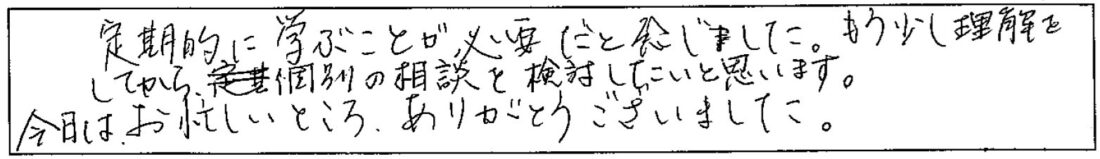 定期的に学ぶことが必要だと感じました。もう少し理解を
してから、個別の相談を検討したいと思います。
今日は、お忙しいところ、ありがとうございました。